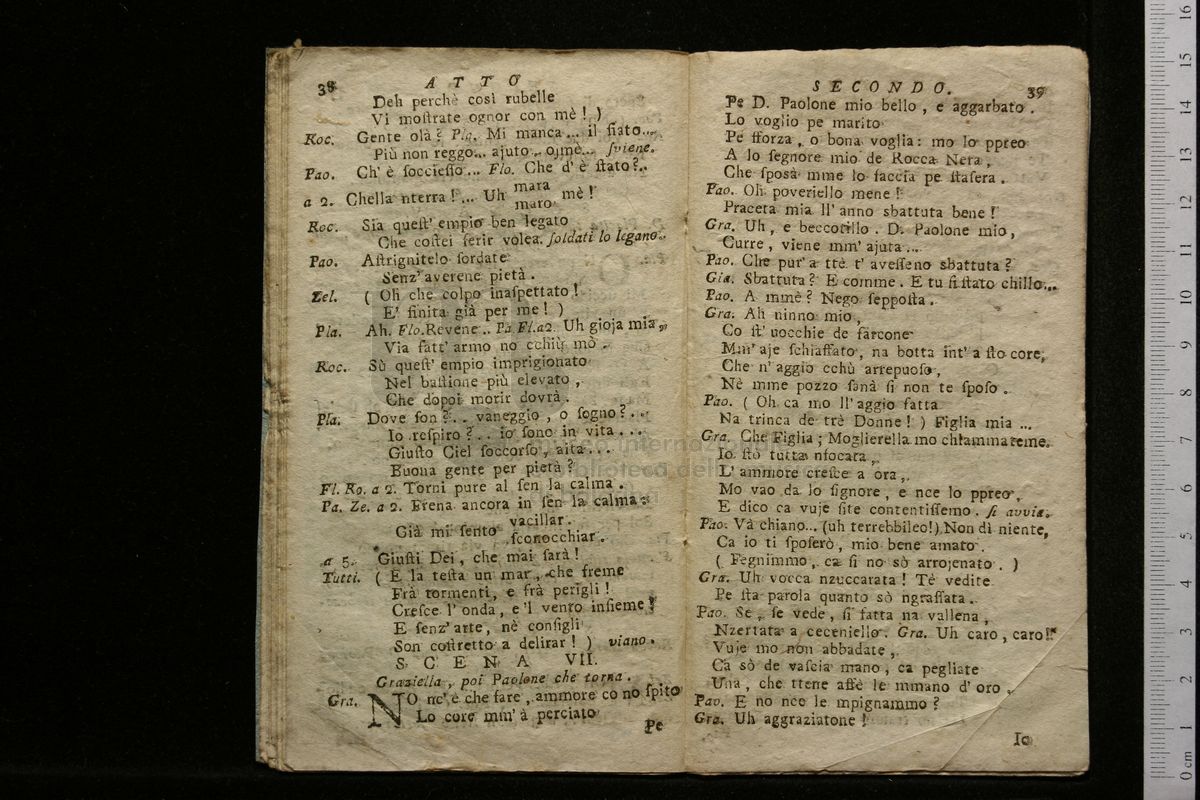 38 ATTO
Deh perchè così rubelle
Vi moſtrate ognor con mè! )
Roc. Gente olà? Pla. Mi manca... il fiato...
Più non reggo... ajuto.. ojmè... ſviene.
Pao. Ch' è ſoccieſſo... Flo. Che d' è ſtato?..
a 2. Chella nterra!... Uh mara mè!
maro
Roc. Sia queſt' empio ben legato
Che coſtei ferir volea. ſoldati lo legano.
Pao. Aſtrignitelo ſordate
Senz' averene pietà.
Zel. ( Oh che colpo inaſpettato!
E' finita già per me! )
Pla. Ah. Flo. Revene.. Pa Fl. a2. Uh gioja mia,
Via fatt' armo no cchiù mò.
Roc. Sù queſt' empio imprigionato
Nel baſtione più elevato,
Che dopoi morir dovrà.
Pla. Dove ſon?.. vaneggio, o ſogno?...
Io reſpiro?.. io ſono in vita...
Giuſto Ciel ſoccorſo, aita...
Buona gente per pietà?
Fl. Ro. a 2. Torni pure al ſen la calma.
Pa. Ze. a 2. Frena ancora in ſen la calma:
Già mi ſento vacillar.
ſconocchiar.
a 5. Giuſti Dei, che mai ſarà!
Tutti. ( E la teſta un mar, che freme
Frà tormenti, e frà perigli!
Creſce l' onda, e 'l vento inſieme!
E ſenz' arte, nè conſigli
Son coſtretto a delirar! ) viano.
SCENA VII.
Graziella, poi Paolone che torna.
Gra. NO nc' è che fare, ammore co no ſpito
Lo core mm' à perciato
Pe
SECONDO. 39
Pe D. Paolone mio bello, e aggarbato.
Lo voglio pe marito
Pe fforza, o bona voglia: mo lo ppreo
A lo ſegnore mio de Rocca Nera,
Che ſposà mme lo faccia pe ſtaſera.
Pao. Oh poveriello mene!
Praceta mia ll' anno sbattuta bene!
Gra. Uh, e beccotillo. D. Paolone mio,
Curre, viene mm' ajuta...
Pao. Che pur' a ttè t' aveſſeno sbattuta?
Gra. Sbattuta? E comme. E tu ſi ſtato chillo...
Pao. A mmè? Nego ſeppoſta.
Gra. Ah ninno mio,
Co ſt' uocchie de farcone
Mm' aje ſchiaffato, na botta int' a ſto core,
Che n' aggio cchù arrepuoſo,
Nè mme pozzo ſanà ſi non te ſpoſo.
Pao. ( Oh ca mo ll' aggio fatta
Na trinca de trè Donne! ) Figlia mia...
Gra. Che Figlia; Moglierella mo chiammateme.
Io ſtò tutta nfocata,
L' ammore creſce a ora,
Mo vao da lo ſignore, e nce lo ppreo,
E dico ca vuje ſite contentiſſemo. ſi avvia.
Pao. Và chiano... (uh terrebbileo!) Non dì niente,
Ca io ti ſpoſerò, mio bene amato.
( Fegnimmo, ca ſi no sò arrojenato. )
Gra. Uh vocca nzuccarata! Tè vedite
Pe ſta parola quanto sò ngraſſata.
Pao. Se, ſe vede, ſi fatta na vallena,
Nzertata a ceceniello. Gra. Uh caro, caro!
Vuje mo non abbadate,
Ca sò de vaſcia mano, ca pegliate
Una, che ttene affè le mmano d' oro,
Pao. E no nce le mpignammo?
Gra. Uh aggraziatone!
Io